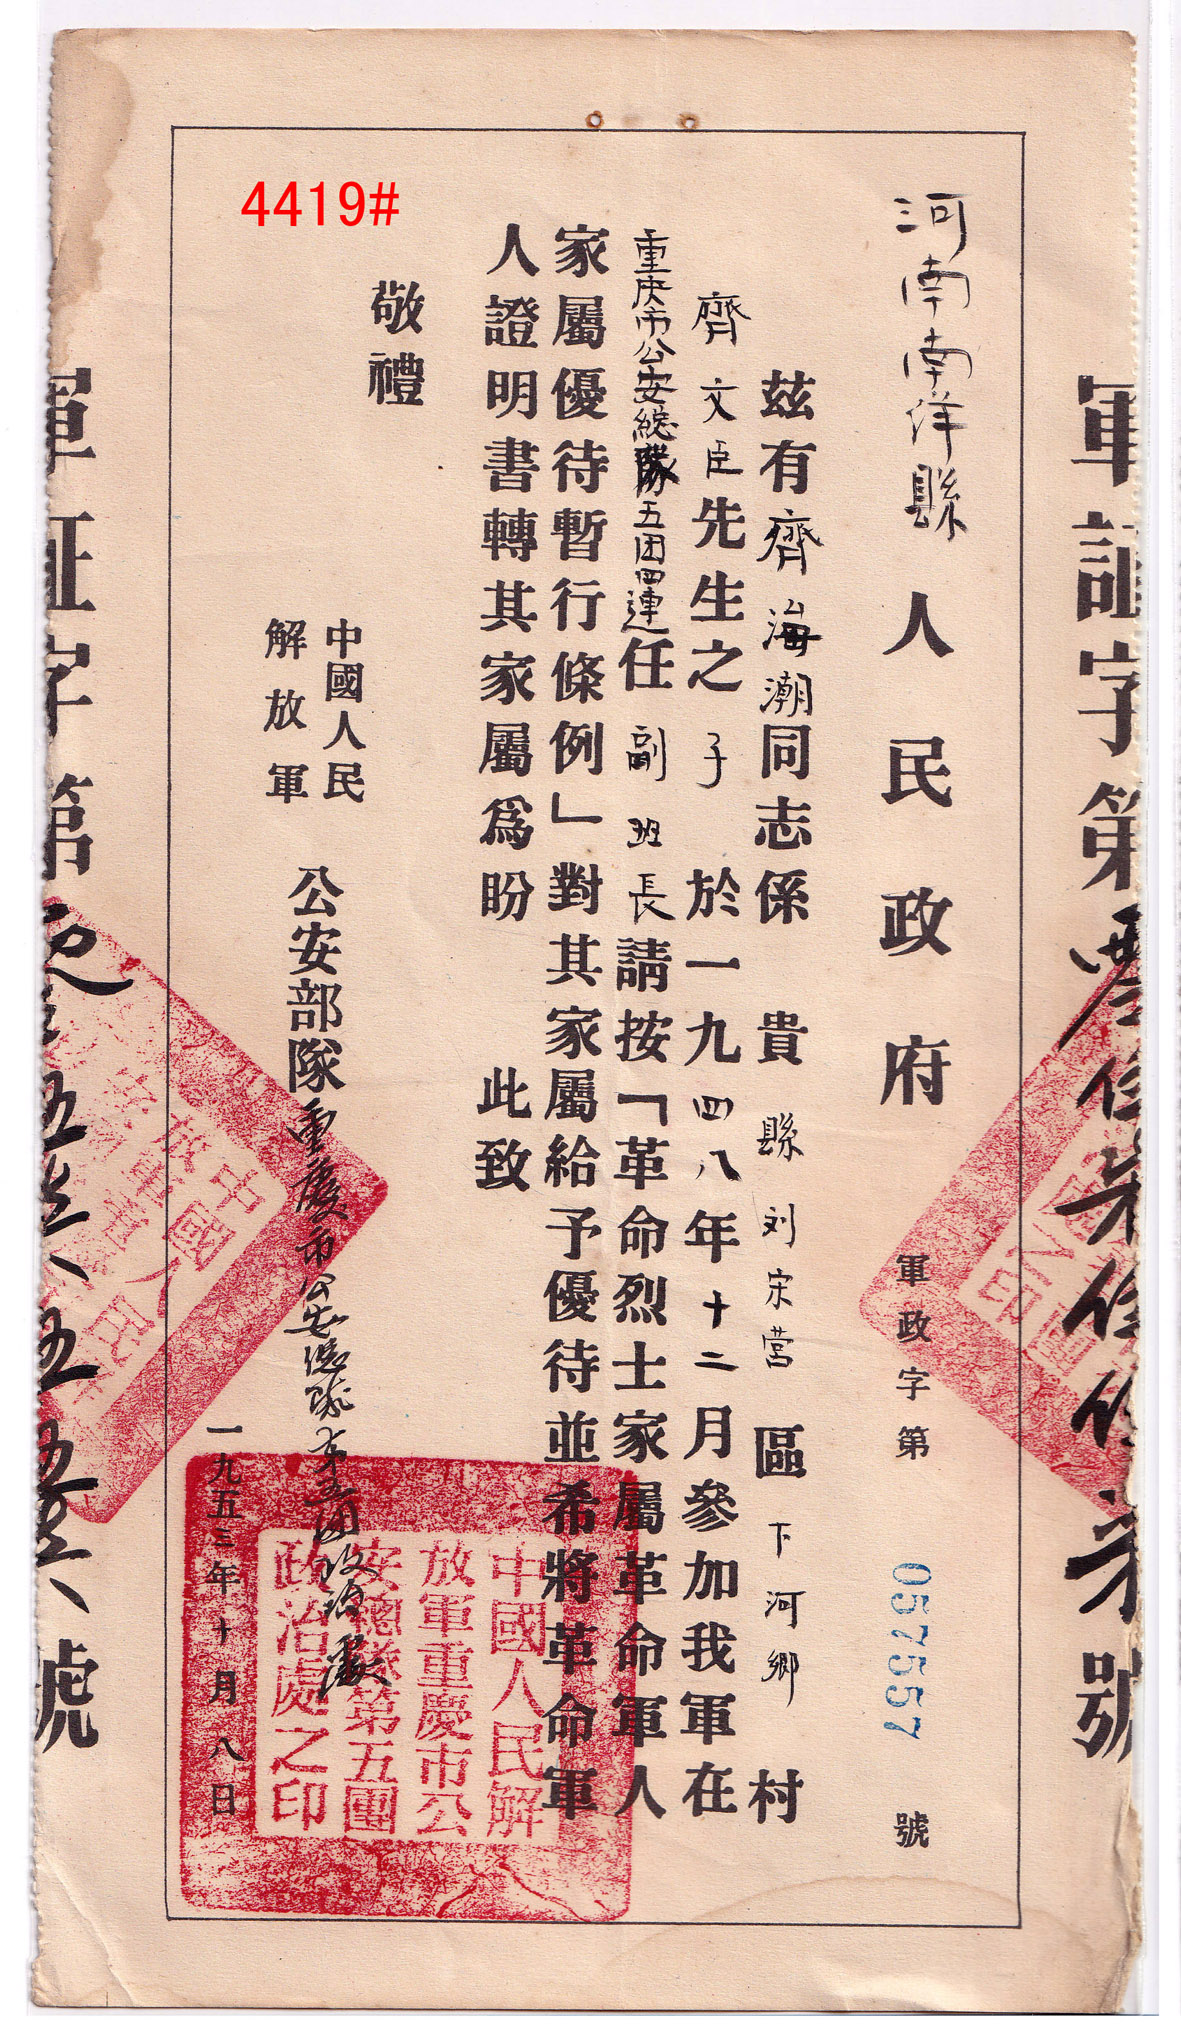 4419#
軍証字第
號
河南南洋縣人民政府
軍政字第057557號
茲有齊海潮同志係貴縣刘宋营區下河鄉村
齊文臣先生之子於一九四八年十二月參加我軍在
重庆市公安總隊五团四連任副班長請按「革命烈士家屬革命軍人
家屬優待暫行條例」對其家屬給予優待並希將革命軍
人證明書轉其家屬爲盼此致
敬禮
中國人民
解放軍
公安部隊重慶市公安總隊第五团政治處
一九五三年十月八日
中國人民解
放軍重慶市公
安總隊第五團
政治處之印
軍証字第
號